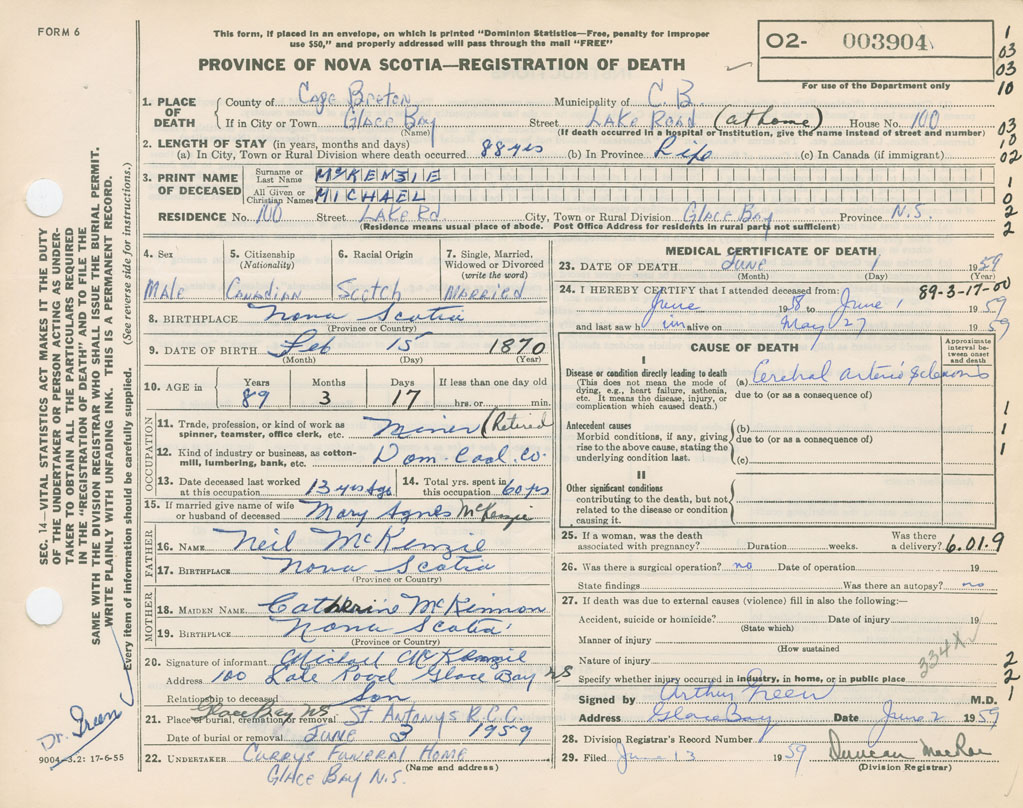 FORM 6
This form, if placed in an envelope, on which is printed "Dominion Statistics—Free, penalty for improper
use $50," and properly addressed will pass through the mail "FREE"
O2- 003904
For use of the Department only
PROVINCE OF NOVA SCOTIA—REGISTRATION OF DEATH
1. PLACE OF DEATH County of Cape Breton Municipality of C.B.
If in City or Town Glace Bay Street LAKE ROAD (at home) House No. 100
(Name) (If death occurred in a hospital or institution, give the name instead of street and number)
2. LENGTH OF STAY (in years, months and days)
(a) In City, Town or Rural Division where death occurred 88 yrs (b) In Province Life (c) In Canada (if immigrant)
3. PRINT NAME OF DECEASED Surname or Last Name McKENZIE
All Given or Christian Names MICHAEL
RESIDENCE No. 100 Street LAKE Rd. City, Town or Rural Division Glace Bay Province N.S.
(Residence means usual place of abode. Post Office Address for residents in rural parts not sufficient)
4. Sex 5. Citizenship (Nationality) 6. Racial Origin 7. Single, Married, Widowed or Divorced (write the word)
Male Canadian Scotch MARRIED
8. BIRTHPLACE Nova Scotia
(Province or Country)
9. DATE OF BIRTH Feb 15 1870
(Month) (Day) (Year)
10. AGE in Years Months Days If less than one day old
89 3 17 hrs. or min.
OCCUPATION
11. Trade, profession, or kind of work as spinner, teamster, office clerk, etc. Miner (Retired
12. Kind of industry or business, as cotton-mill, lumbering, bank, etc. Dom. Coal. Co.
13. Date deceased last worked at this occupation 13 yrs Ago 14. Total yrs. spent in this occupation 60 yrs
15. If married give name of wife or husband of deceased Mary Agnes McKenzie
FATHER
16. NAME Neil McKenzie
17. BIRTHPLACE Nova Scotia
(Province or Country)
MOTHER
18. MAIDEN NAME Catherine McKinnon
19. BIRTHPLACE Nova Scotia
(Province or Country)
20. Signature of informant Michael McKenzie
Address 100 Lake Road Glace Bay NS
Relationship to deceased Son
21. Place of burial, cremation or removal Glace Bay NS St Antonys R.C.C.
Date of burial or removal JUNE 3 1959
22. UNDERTAKER Currys Funeral Home
(Name and address)
GLACE BAY N.S.
MEDICAL CERTIFICATE OF DEATH
23. DATE OF DEATH June 1 1959
(Month) (Day) (Year)
89-3-17-00
24. I HEREBY CERTIFY that I attended deceased from:
June 1958 to June 1 1959
and last saw h im alive on May 27 1959
CAUSE OF DEATH
Approximate interval between onset and death
I
Disease or condition directly leading to death
(This does not mean the mode of dying, e.g., heart failure, asthenia, etc. It means the disease, injury, or complication which caused death.)
(a) Cerebral arterio sclerosis
due to (or as a consequence of)
Antecedent causes
Morbid conditions, if any, giving rise to the above cause, stating the underlying condition last.
(b)
due to (or as a consequence of)
(c)
II
Other significant conditions
contributing to the death, but not related to the disease or condition causing it.
25. If a woman, was the death associated with pregnancy? Duration weeks. Was there a delivery? 6.01.9
26. Was there a surgical operation? no Date of operation 19
State findings Was there an autopsy? no
27. If death was due to external causes (violence) fill in also the following:—
Accident, suicide or homicide? Date of injury 19
(State which)
Manner of injury
(How sustained
Nature of injury
334X
Specify whether injury occurred in industry, in home, or in public place
Signed by Arthur Green M.D.
Address Glace Bay Date June 2 1959
28. Division Registrar's Record Number
29. Filed June 13 1959 Duncan MacRae
(Division Registrar)
1
03
03
10
03
10
02
1
0
2
2
1
1
1
2
2
1
SEC. 14—VITAL STATISTICS ACT MAKES IT THE DUTY
OF THE UNDERTAKER OR PERSON ACTING AS UNDER-
TAKER TO OBTAIN ALL THE PARTICULARS REQUIRED
IN THE "REGISTRATION OF DEATH" AND TO FILE THE
SAME WITH THE DIVISION REGISTRAR WHO SHALL ISSUE THE BURIAL PERMIT.
WRITE PLAINLY WITH UNFADING INK. THIS IS A PERMANENT RECORD.
Every item of information should be carefully supplied. (See reverse side for instructions.)
Dr. Green
9004-3.2: 17-6-55